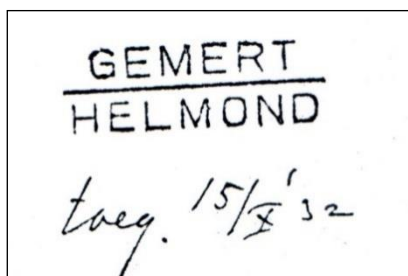 GEMERT
HELMOND
toeg. 15/X '32